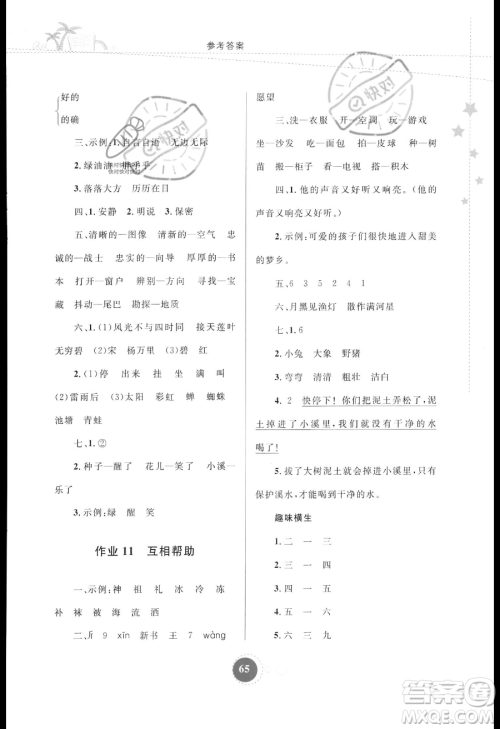 参考答案
好的
的确
三、示例:1.自言自语 无边无际
2.绿油油
3.落落大方 历历在目
四、1.安静 2.明说 3.保密
五、清晰的—图像 清新的—空气 忠
诚的—战士 忠实的—同伴 厚厚的—书
本 打开—窗户 辨别—方向 寻找—宝
藏 抖动—尾巴 勘探—地质
六、1.(1)风光不与四时同 接天莲叶
无穷碧 (2)宋 杨万里 碧 红
2.(1)停 出来 挂 坐 叫
(2)雷雨后 (3)太阳 彩虹 蝉 蜘蛛
池塘 青蛙
七、1.②
2.种子—醒了 花儿—笑了 小溪—
乐了
3.示例:绿 醒 笑
作业 11 互相帮助
一、示例:神 祖 礼 冰 冷 冻
补 袜 被 海 流 洒
二、jǐ 9 xīn 新书 王 7 wàng
愿望
三、洗—衣服 开—空调 玩—游戏
坐—沙发 写—作业 拍—皮球 种—树
苗 搬—椅子 看—电视 搭—积木
四、1.他的声音又好听又响亮。(他的
声音又响亮又好听。)
2.示例:可爱的孩子们很快地进入甜美
的梦乡。
五、6 3 5 2 4 1
六、月黑见渔灯 散作满河星
七、1.6
2.小兔 大象 野猪
3.弯弯 清清 粗壮 洁白
4.2 快停下!你们把泥土弄松了,泥
土掉进了小溪里,我们就没有干净的水
喝了!
5.拔了大树泥土就会掉进小溪里,只有
保护溪水,才能喝到干净的水。
趣味横生
1.二 一 三
2.三 一 四
3.四 一 五
4.五 一 六
5.六 三 九
65
快对
快对
答案圈
MXQE.COM